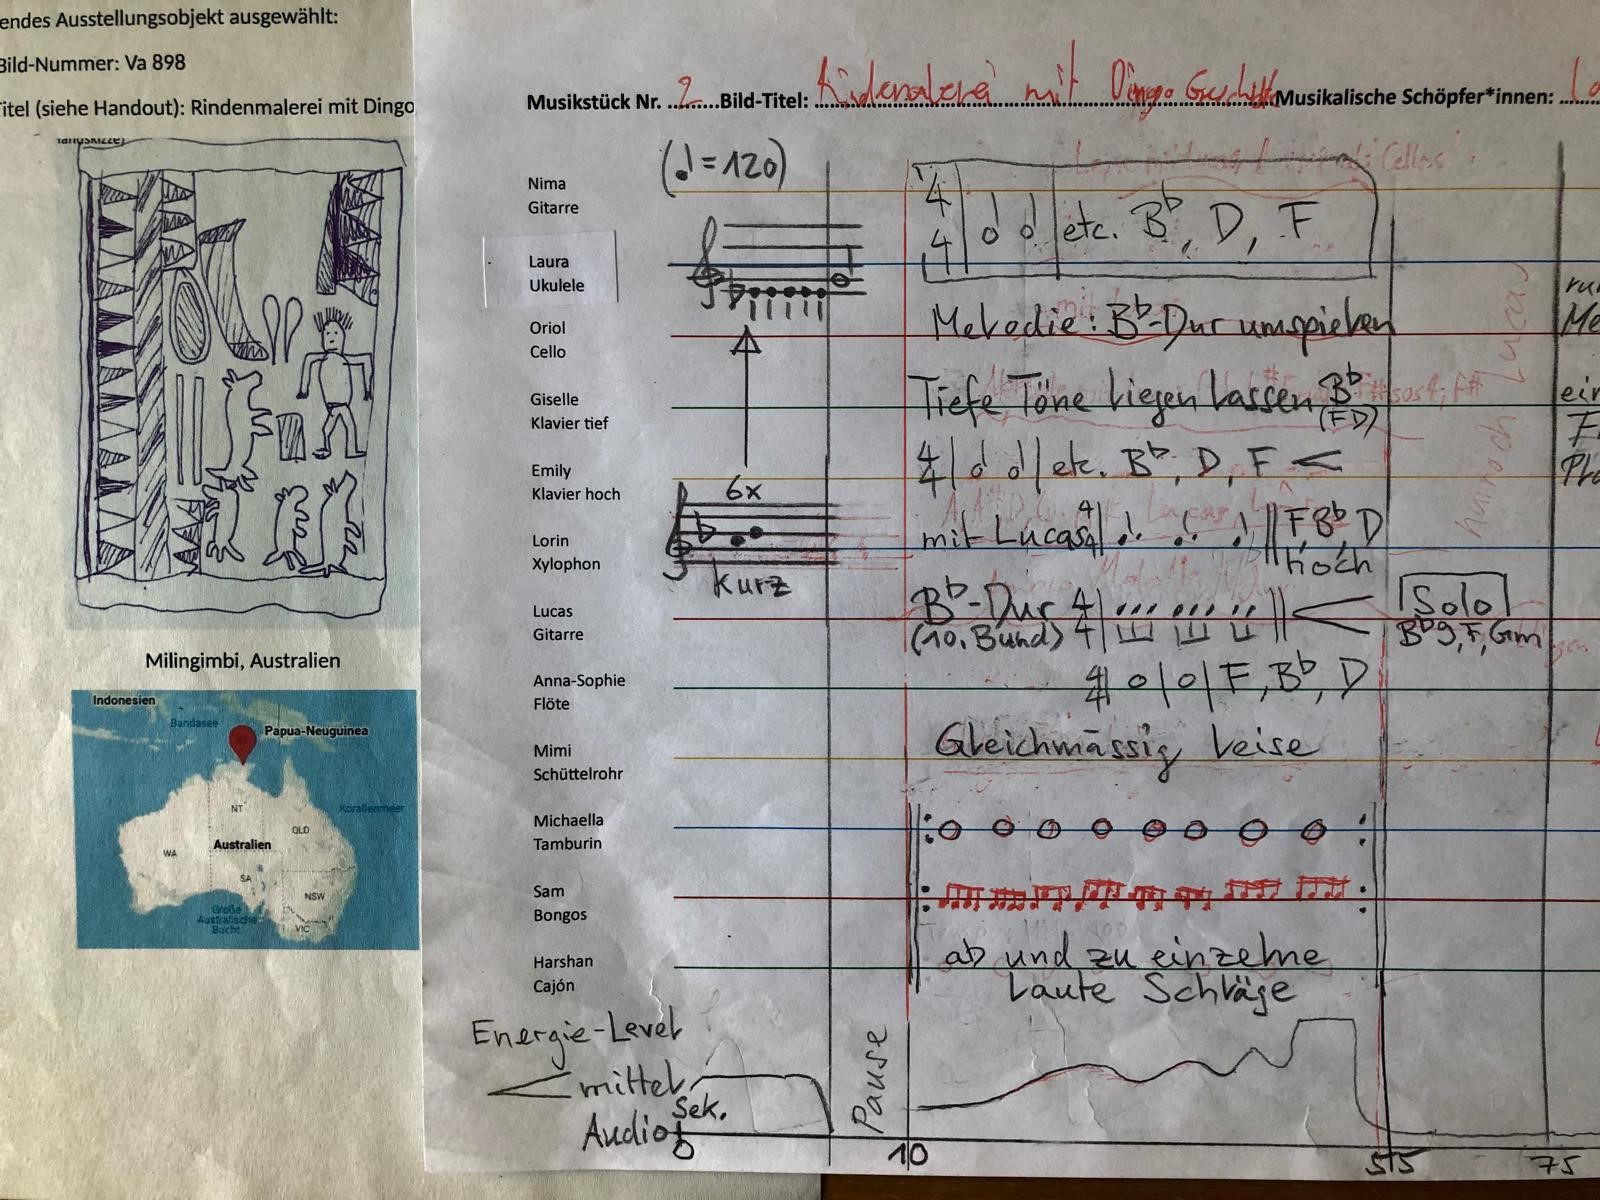 endes Ausstellungsobjekt ausgewählt:
Bild-Nummer: Va 898
Titel (siehe Handout): Rindenmalerei mit Dingo
Milingimbi, Australien
Indonesien
Bandasee
Papua-Neuguinea
Korallenmeer
NT
QLD
WA
Australien
SA
NSW
Große Australische Bucht
VIC
Musikstück Nr. 2 Bild-Titel: mit Dingo Musikalische Schöpfer*innen:
(♩=120)
Nima
Gitarre
4/4 etc. B♭, D, F
Laura
Ukulele
Oriol
Cello
Melodie: B♭-Dur umspielen
Giselle
Klavier tief
Tiefe Töne liegen lassen B♭
(F D)
Emily
Klavier hoch
4/4 etc. B♭, D, F <
6x
Lorin
Xylophon
kurz
mit Lucas 4/4 F, B♭, D
hoch
Lucas
Gitarre
B♭-Dur 4/4
(10. Bund)
Solo
B♭9, F, Gm
Anna-Sophie
Flöte
4/4 F, B♭, D
Mimi
Schüttelrohr
Gleichmässig leise
Michaella
Tamburin
Sam
Bongos
Harshan
Cajón
ab und zu einzelne
laute Schläge
Energie-Level
mittel
Sek.
Audio
0
Pause
10
55
75